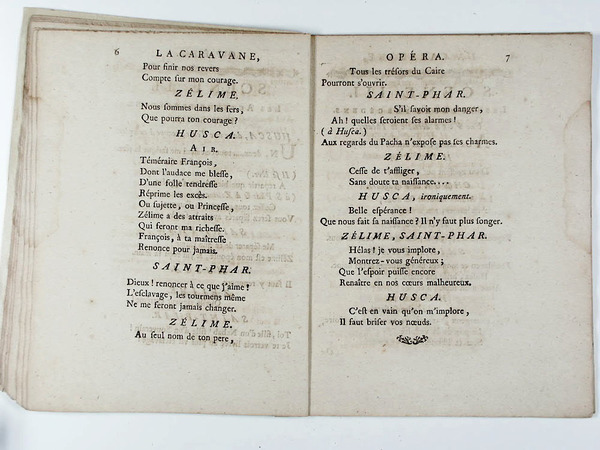 6 LA CARAVANE,
Pour finir nos revers
Compte sur mon courage.
ZÉLIME.
Nous sommes dans les fers,
Que pourra ton courage ?
HUSCA.
AIR.
Téméraire François,
Dont l'audace me blesse,
D'une folle tendresse
Réprime les excès.
Ou sujette, ou Princesse,
Zélime a des attraits
Qui seront ma richesse.
François, à ta maîtresse
Renonce pour jamais.
SAINT-PHAR.
Dieux ! renoncer à ce que j'aime !
L'esclavage, les tourmens même
Ne me feront jamais changer.
ZÉLIME.
Au seul nom de ton pere,
OPÉRA. 7
Tous les trésors du Caire
Pourront s'ouvrir.
SAINT-PHAR.
S'il savoit mon danger,
Ah ! quelles seroient ses alarmes !
( à Husca. )
Aux regards du Pacha n'expose pas ses charmes.
ZÉLIME.
Cesse de t'affliger,
Sans doute ta naissance....
HUSCA, ironiquement.
Belle espérance !
Que nous fait sa naissance ? Il n'y faut plus songer.
ZÉLIME, SAINT-PHAR.
Hélas ! je vous implore,
Montrez-vous généreux ;
Que l'espoir puisse encore
Renaître en nos cœurs malheureux.
HUSCA.
C'est en vain qu'on m'implore,
Il faut briser vos nœuds.